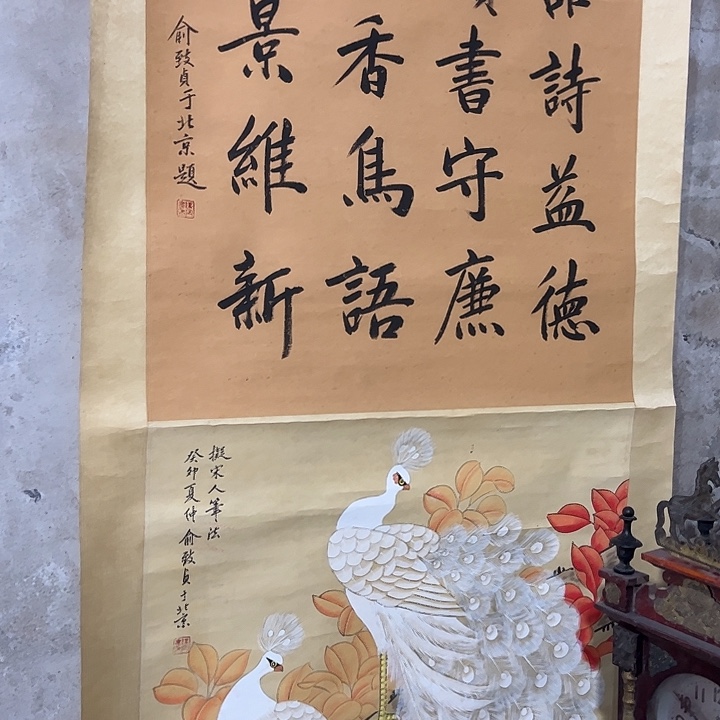 詩益德
書守廉
香鳥語
景維新
俞致貞于北京題
擬宋人筆法
癸卯夏仲俞致貞于北京